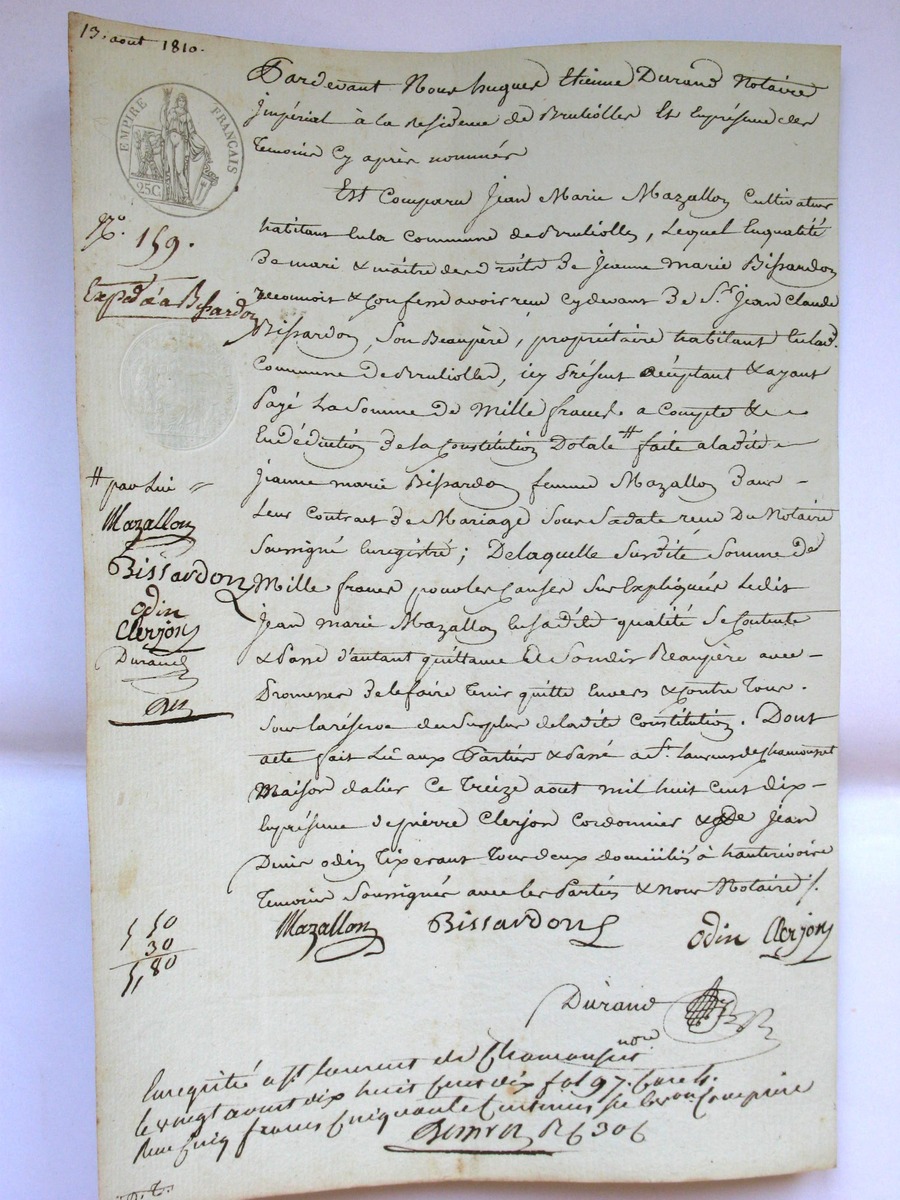 13. aout 1810.
EMPIRE FRANÇAIS
25C
Pardevant Nous hugues Etienne Durand Notaire
Impérial à la Residence de Brulliolles Et Enprésence des
temoins Cy après nommés
Est Comparu Jean Marie Mazallon Cultivateur
N.o 159.
habitant Enla Commune de Brulliolles, Lequel Enqualité
De mari & maitre des droits De Jeanne Marie Bissardon
Exped.é a Bissardon
reconnoit & Confesse avoir reçu Cydevant De S.r Jean Claude
Bissardon, Son Beaupère, propriétaire habitant Enlad.
Commune De Brulliolles, icy Présent acceptant & ayant
Payé La Somme De Mille francs a Compte &
Endéduction De la Constitution Dotale # faite aladite
# par Lui
Jeanne marie Bissardon femme Mazallon Dans
Mazallon
Leur Contrat De Mariage Sous Sadate reçu Du Notaire
Soussigné Enregistré ; De laquelle Susdite Somme De
Bissardon
Mille francs pour les Causes Sus Expliquées Ledit
odin
Clerjon
Jean marie Mazallon En sadite qualité Se Contente
Durand
& Passe d'autant quittance Et Sondit Beaupère avec
Promesse De le faire Tenir quitte Envers & Contre Tous.
Sous la réserve du Surplus de ladite Constitution. Dont
acte fait Lû aux Parties & Passé a S.t Laurens de Chamousset
Maison dalier Ce Treize aout mil huit Cent dix
Enprésence de pierre Clerjon Cordonnier & de Jean
Denis odin Tixerant Tous deux domiciliés à hauterivoire
Temoins Soussignés avec les Parties & Nous Notaire /.
5 50
30
5,80
Mazallon Bissardon odin Clerjon
Durand
Enregistré a S.t Laurent de Chamousset
le vingt aout dix huit Cent dix f.ol 97.
Reçu Cinq francs Cinquante Centimes
R 6 306